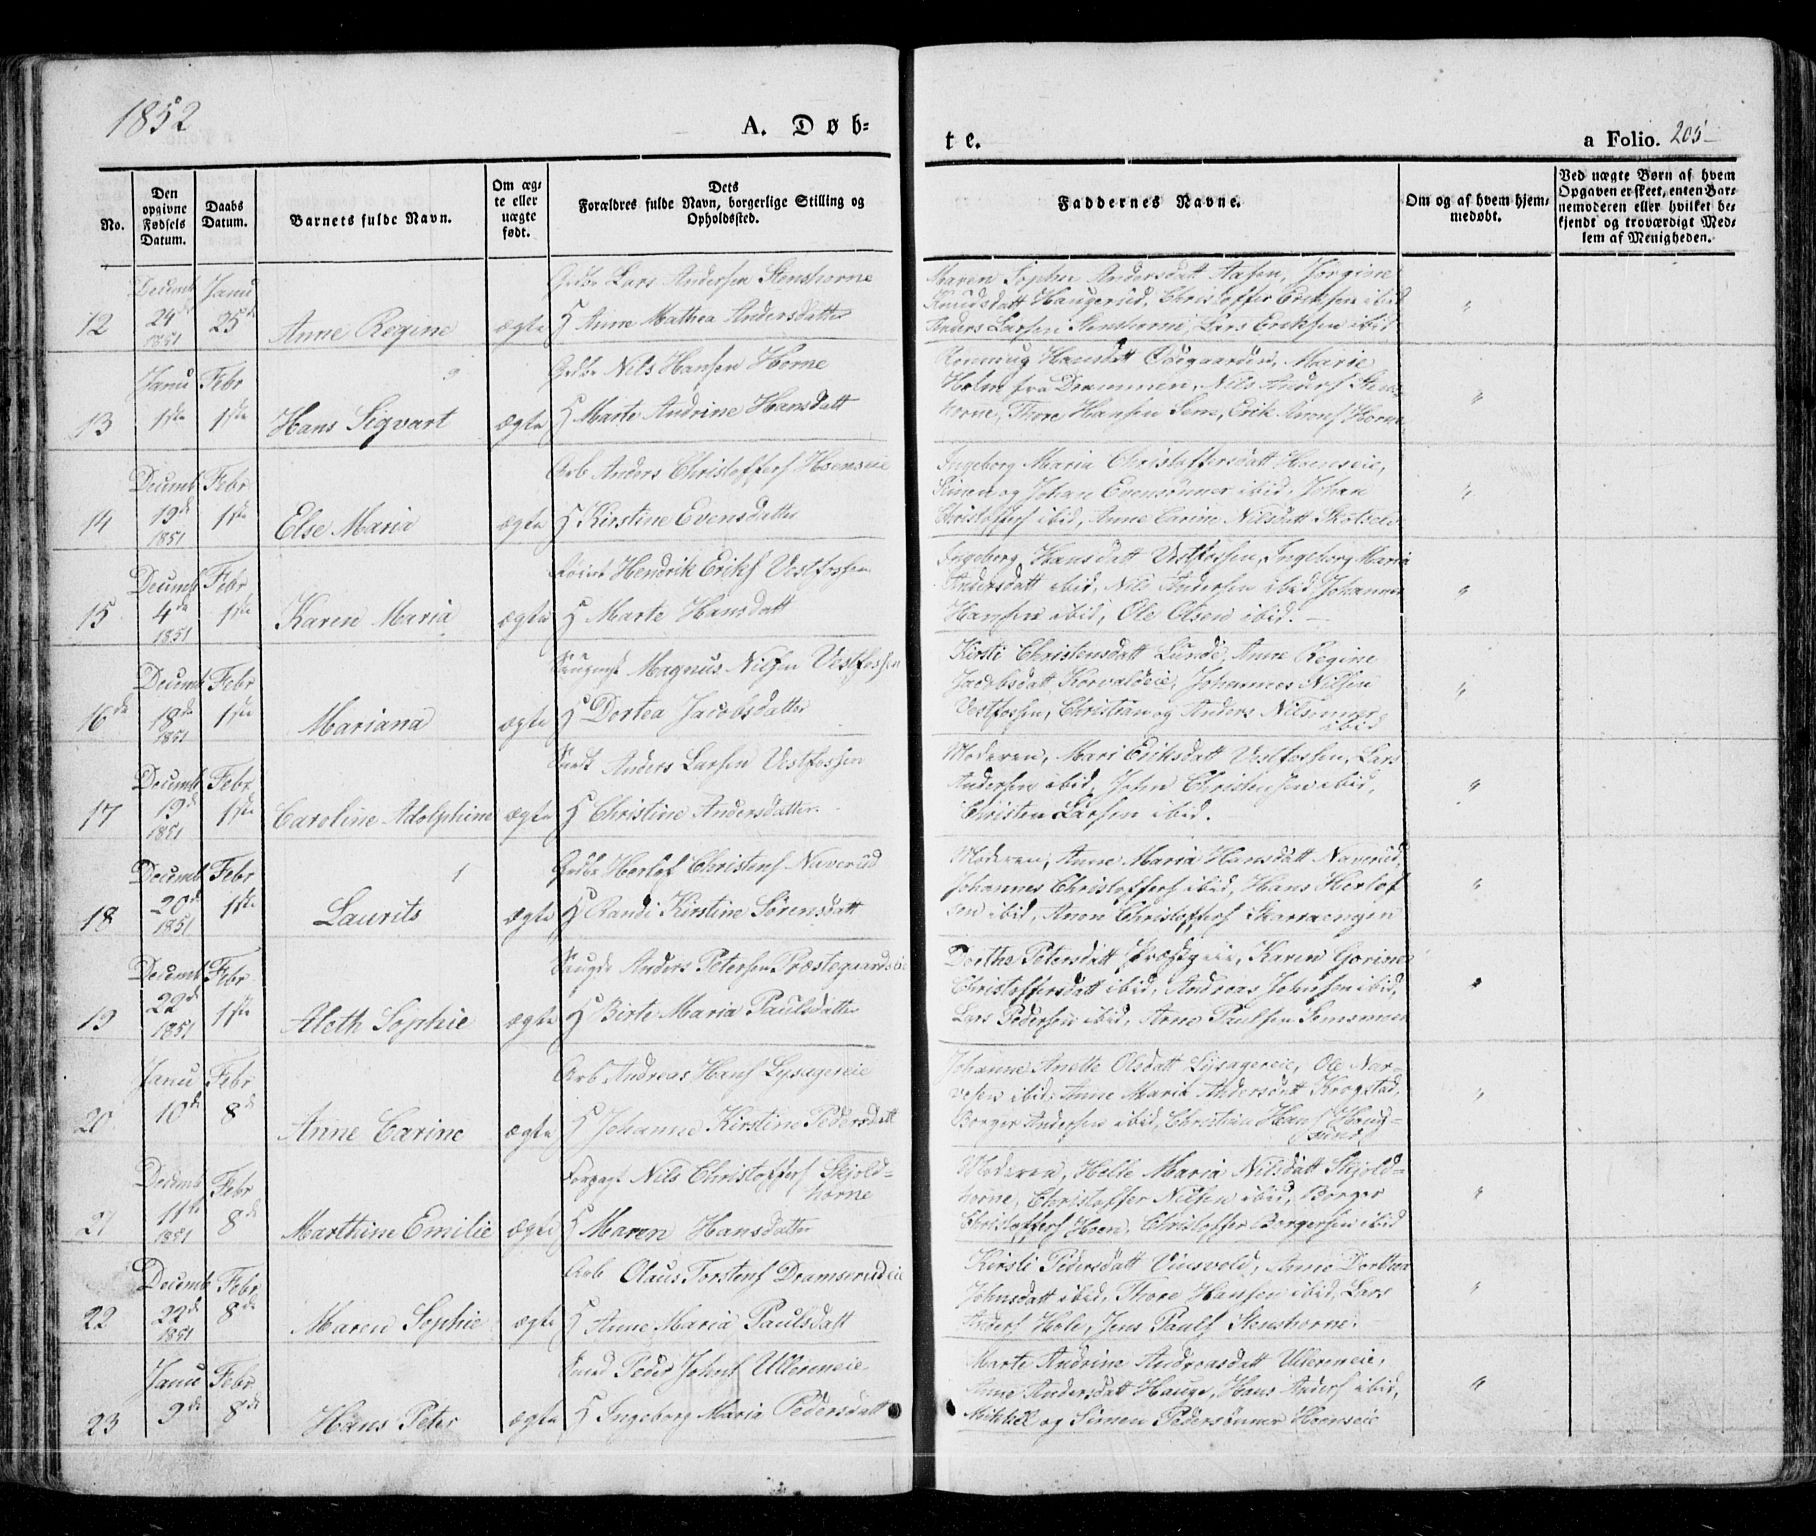 1852
A. Døb-
te.
a Folio. 205
No.
Den opgivne Fødsels Datum.
Daabs Datum.
Barnets fulde Navn.
Om ægte eller uægte født.
Dets Forældres fulde Navn, borgerlige Stilling og Opholdssted.
Faddernes Navne.
Om og af hvem hjemmedøbt.
Ved uægte Børn af hvem Opgaven er skeet, enten Barnemoderen eller hvilket bekjendt og troværdigt Medlem af Menigheden.
12
Decemb 24de 1851
Janu 25de
Anne Regine
ægte
Gdbr Lars Andersen Stenshorne
H Anne Mathea Andersdatter
Maren Sophie Andersdatt Aasen, Jørgine
Knudsdatt Haugerud, Christoffer Eriksen ibid
Anders Larsen Stenshorne, Lars Eriksen ibid
"
13
Janu 1ste
Febr 1ste
Hans Sigvart
ægte
Gdbr Nils Hansen Horne
H Marte Andrine Hansdatt
Hansdatt Marie
Holm fra Drammen, Nils Anders Stens-
horne, Thore Hansen Sem, Erik Horne
"
14
Decemb 19de 1851
Febr 1ste
Else Maria
ægte
Arb Anders Christoffers Hoenseie
H Kirstine Evensdatter
Ingeborg Maria Christoffersdatt Hoenseie,
Simen og Johan Evensønner ibid, Johan
Christoffers ibid, Anne Carine Nilsdatt Skotselv
"
15
Decemb 4de 1851
Febr 1ste
Karen Maria
ægte
Hendrik Eriks Vestfossen
H Marte Hansdatt
Ingeborg Hansdatt Vestfossen, Ingeborg Maria
Andersdatt ibid, Nils Andersen ibid, Johannes
Hansen ibid, Ole Olsen ibid.
"
16de
Decemb 18de 1851
Febr 1ste
Mariana
ægte
Magnus Nilsen Vestfossen
H Dortea Jacobsdatter
Kirsti Christensdatt Lunde, Anne Regine
Jacobsdatt Korvaldeie, Johannes Nilsen
Vestfossen, Christian og Anders Nilsønner
ibid
"
17
Decemb 19de 1851
Febr 1ste
Caroline Adolphine
ægte
Anders Larsen Vestfossen
H Christine Andersdatter.
Moderen, Mari Eriksdatt Vestfossen, Lars
Andersen ibid, John Christensen ibid,
Christen Larsen ibid.
"
18
Decemb 20de 1851
Febr 1ste
Laurits
ægte
Gdbr Herlof Christens Naverud
H Randi Kirstine Sørensdatt
Moderen, Anne Maria Hansdatt Naverud,
Johannes Christoffers ibid, Hans Herlof
sen ibid, Anon Christoffers
"
19
Decemb 22de 1851
Febr 1ste
Aleth Sophie
ægte
Anders Petersen Præstegaardseie
H Birte Maria Paulsdatter
Dorthe Petersdatt Præstgeie, Karen Gorine
Christoffersdatt ibid, Andreas Johnsen ibid,
Lars Pedersen ibid, Arne Paulsen
"
20
Janu 10de
Febr 8de
Anne Carine
ægte
Arb Andreas Hans Lysagereie
H Johanne Kirstine Pedersdatt
Johanne Anette Olsdatt Lysagereie, Ole Nar-
vesen ibid, Anne Maria Andersdatt Krogstad,
Borger Andersen ibid, Christian Hans Haug-
sund
"
21
Decemb 11te 1851
Febr 8de
Marthine Emilie
ægte
Forpagt Nils Christoffers Skjold-
horne
H Maren Hansdatter
Moderen, Helle Maria Nilsdatt Skjold-
horne, Christoffer Nilsen ibid, Borger
Christoffers Hoen, Christoffer Borgersen ibid
"
22
Decemb 22de 1851
Febr 8de
Maren Sophie
ægte
Arb Olaus Torstens Dramserudeie
H Anne Maria Paulsdatt
Kirsti Pedersdatt Vinsvold, Anne Dorthea
Johnsdatt ibid, Thore Hansen ibid, Lars
Anders Hole, Jens Pauls Stenshorne.
"
23
Janu 9de
Febr 8de
Hans Peter
ægte
Smed Peder Johns Ullereneie
H Ingeborg Maria Pedersdatt
Marte Andrine Andreasdatt Ullereneie,
Anne Andersdatt Hauge, Hans Anders ibid,
Mikkel og Simen Pedersønner Hoenseie
"